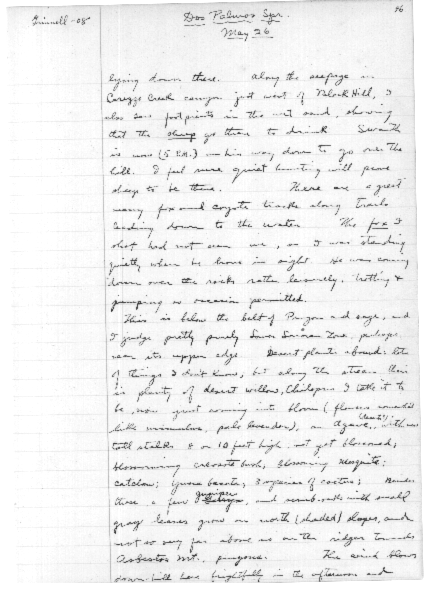 Grinnell - 08
Dos Palmos Spr.
May 26
46
lying down there. Along the seepage in
Carrizo Creek canyon just west of Black Hill, I
also saw footprints in the wet sand, showing
that the sheep go there to drink. Swarth
is now (5 P.M.) on his way down to go over the
hill. I feel sure quiet hunting will prove
sheep to be there. There are a great
many fox and coyote tracks along trails
leading down to the water. The fox I
shot had not seen me, as I was standing
quietly when he hove in sight. He was coming
down over the rocks rather leisurely, trotting &
jumping as occasion permitted.
This is below the belt of Pinyons and sage, and
I judge pretty purely Lower Sonoran Zone, perhaps
near its upper edge. Desert plants abound: lots
of things I don't know, but along the stream there
is plenty of desert willow, Chilopsis I take it to
be, now just coming into bloom (flowers
like mimulus, pale lavender), an Agave, with
tall stalks 8 or 10 feet high not yet blossomed;
blossoming creosote bush, blooming mesquite;
catclaw; Yucca 3 species of cactus; Besides
these a few juniper, and scrub oaks with small
gray leaves grow on north (shaded) slopes, and
not so very far above us on the ridges towards
Asbestos Mt., pinyons. The wind blows
down hill here frightfully in the afternoon and